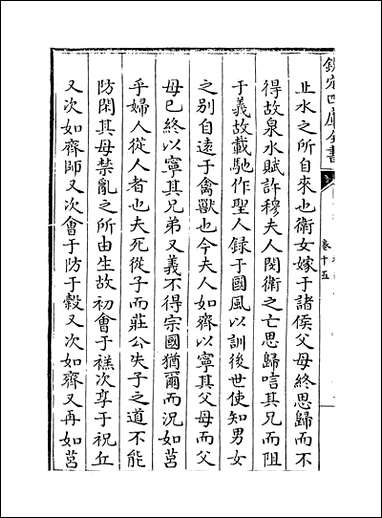 欽定四庫全書
卷十五
止水之所自來也衛女嫁于諸侯父母終思歸而不
得故泉水賦許穆夫人閔衛之亡思歸唁其兄而阻
于義故載馳作聖人録于國風以訓後世使知男女
之别自遠于禽獸也今夫人如齊以寧其父母而父
母已終以寧其兄弟又義不得宗國猶爾而況如莒
乎婦人從人者也夫死從子而莊公失子之道不能
防閑其母禁亂之所由生故初會于禚次享于祝丘
又次如齊師又次會于防于穀又次如齊又再如莒